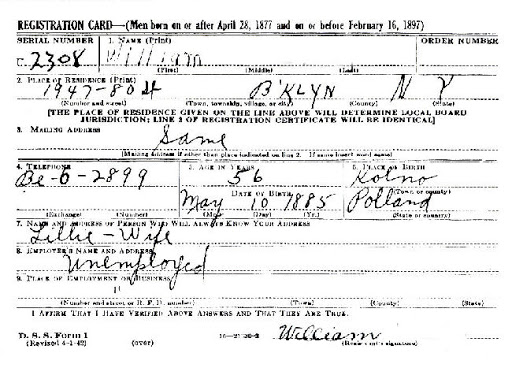 REGISTRATION CARD—(Men born on or after April 28, 1877 and on or before February 16, 1897)
SERIAL NUMBER 1. NAME (Print) ORDER NUMBER
U 2308 William
(First) (Middle) (Last)
2. PLACE OF RESIDENCE (Print)
1947-80 st B'KLYN N Y
(Number and street) (Town, township, village, or city) (County) (State)
[THE PLACE OF RESIDENCE GIVEN ON THE LINE ABOVE WILL DETERMINE LOCAL BOARD
JURISDICTION; LINE 2 OF REGISTRATION CERTIFICATE WILL BE IDENTICAL]
3. MAILING ADDRESS
Same
[Mailing address if other than place indicated on line 2. If same insert word same]
4. TELEPHONE 5. AGE IN YEARS 6. PLACE OF BIRTH
Be-6-2899 56 Kolno
DATE OF BIRTH (Town or county)
May 10 1885 Polland
(Exchange) (Number) (Mo.) (Day) (Yr.) (State or country)
7. NAME AND ADDRESS OF PERSON WHO WILL ALWAYS KNOW YOUR ADDRESS
Lillie-Wife
8. EMPLOYER'S NAME AND ADDRESS
Unemployed
9. PLACE OF EMPLOYMENT OR BUSINESS
"
(Number and street or R. F. D. number) (Town) (County) (State)
I AFFIRM THAT I HAVE VERIFIED ABOVE ANSWERS AND THAT THEY ARE TRUE.
D. S. S. Form 1 William
(Revised 4-1-42) (over) (Registrant's signature)